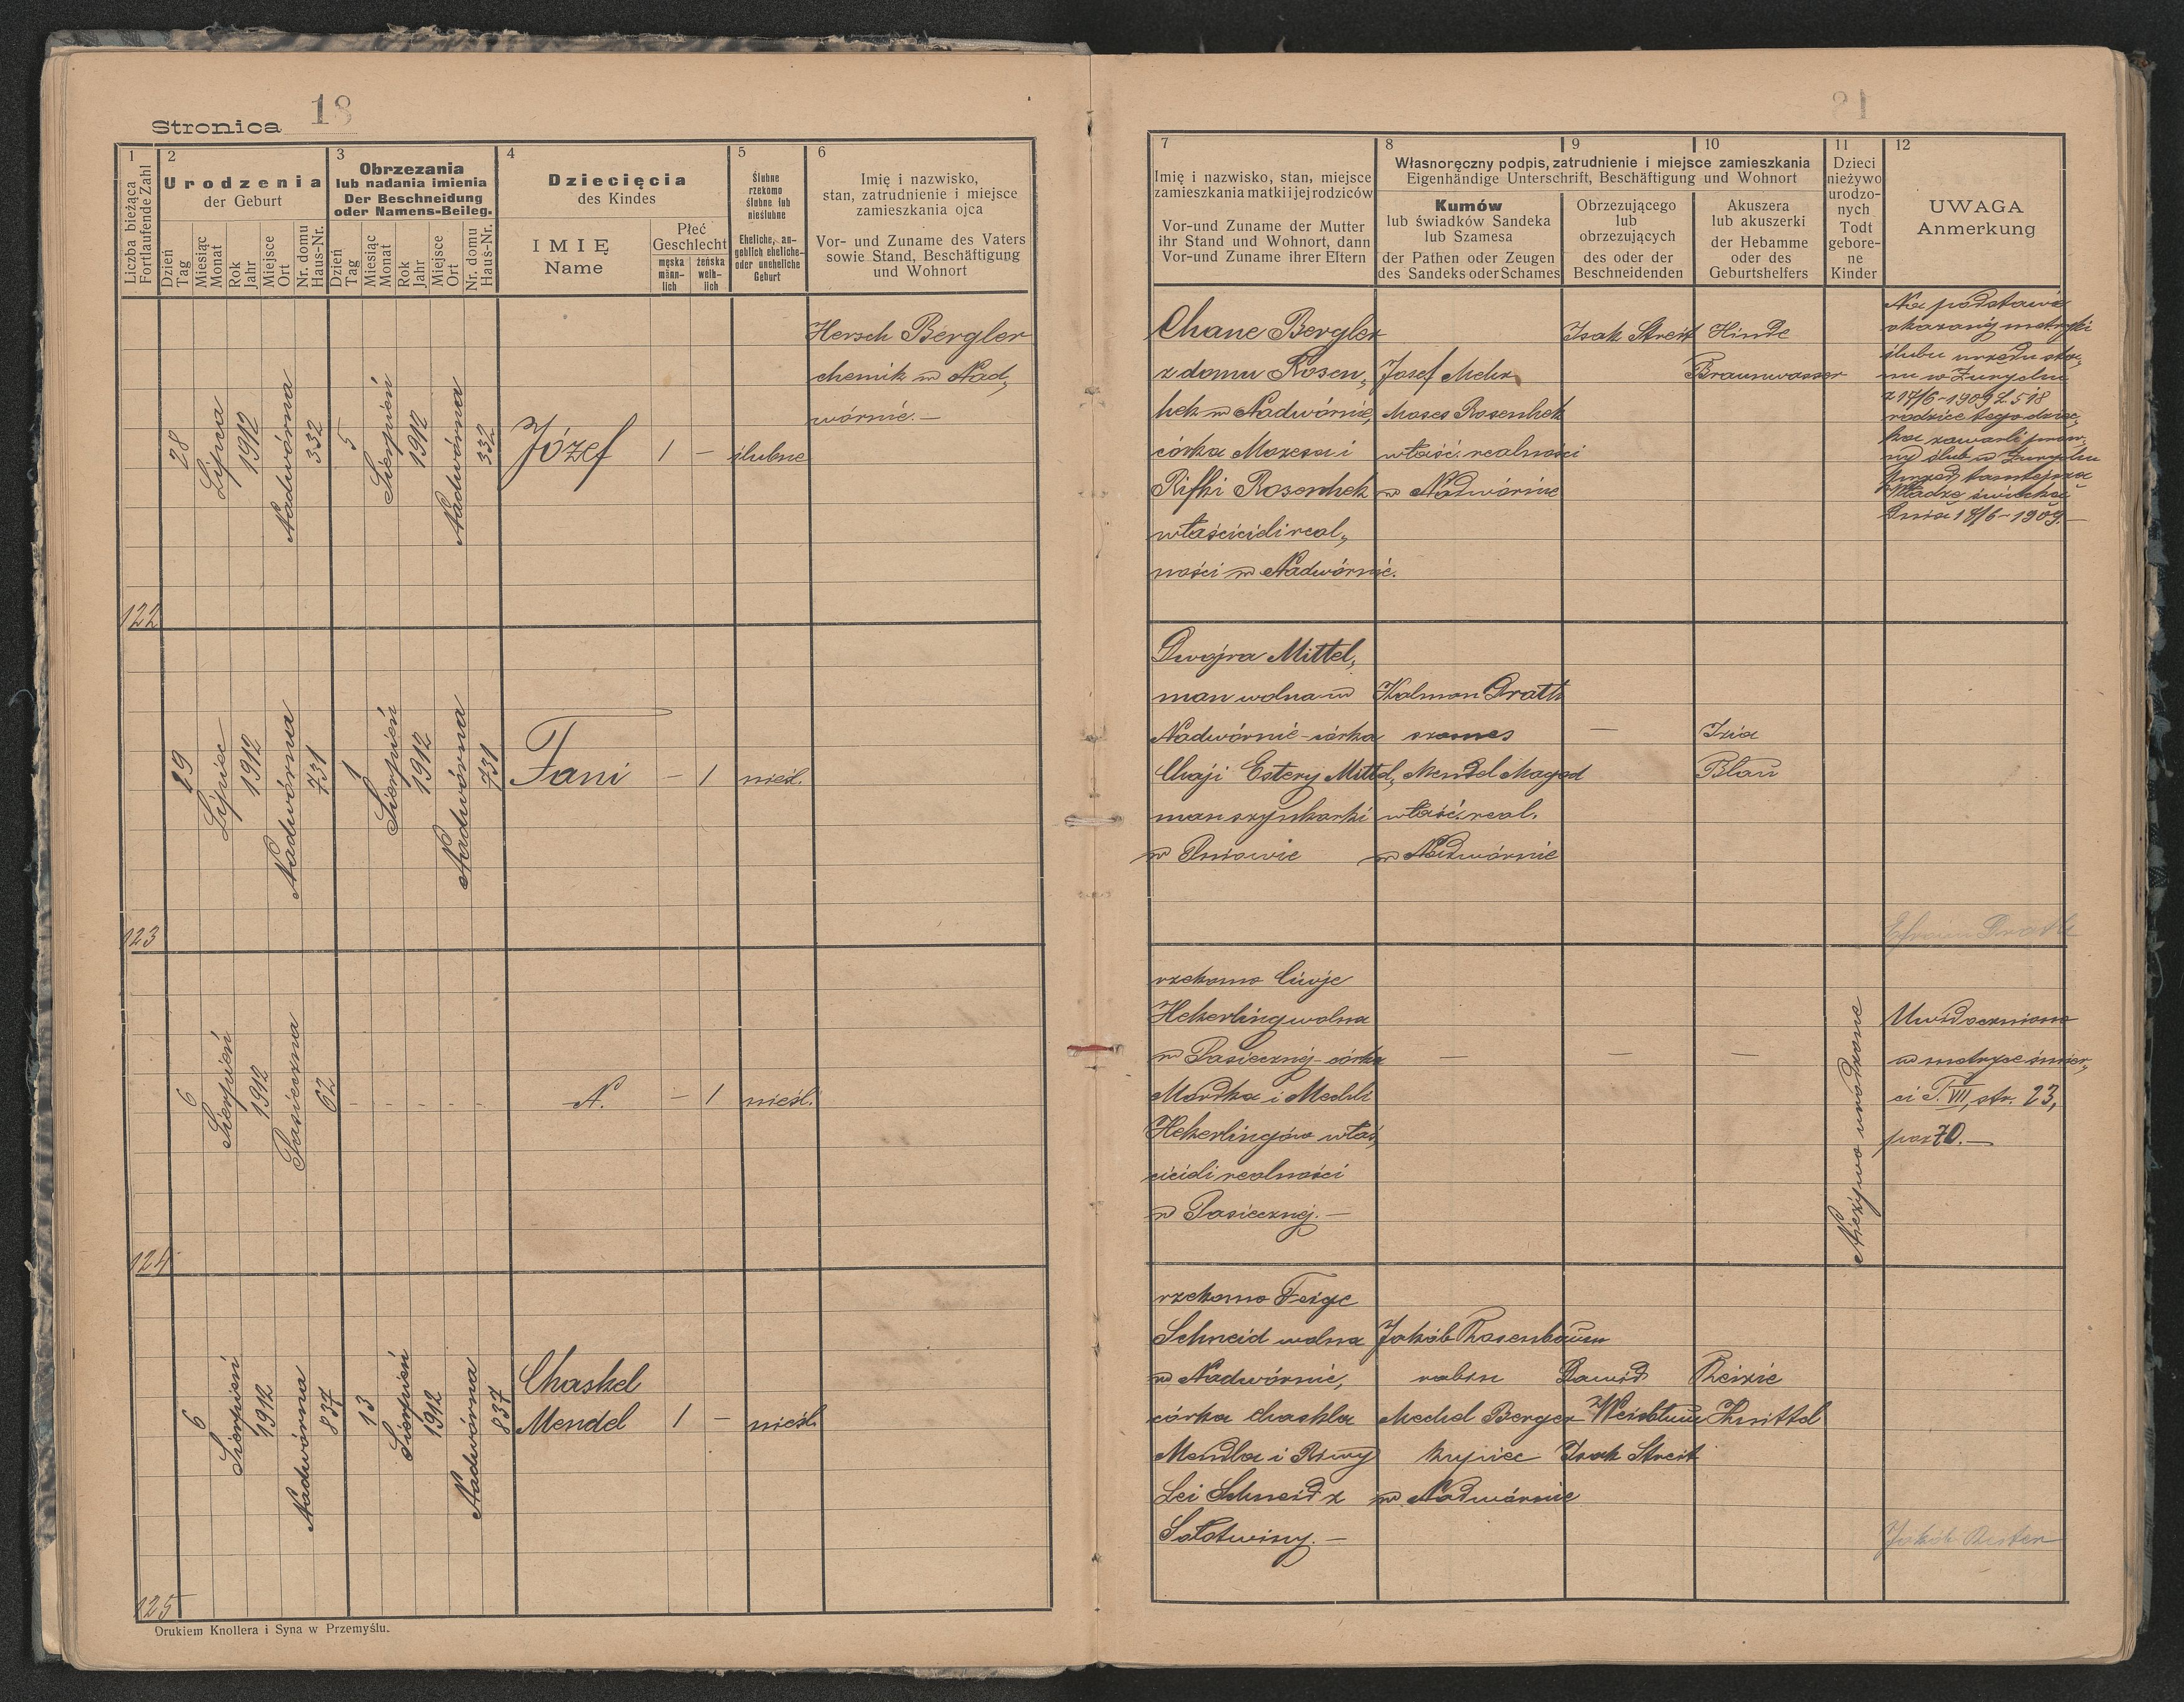 Stronica 18
1
Liczba bieżąca
Fortlaufende Zahl
2
Urodzenia
der Geburt
Dzień
Tag
Miesiąc
Monat
Rok
Jahr
Miejsce
Ort
Nr. domu
Haus-Nr.
3
Obrzezania
lub nadania imienia
Der Beschneidung
oder Namens-Beileg.
Dzień
Tag
Miesiąc
Monat
Rok
Jahr
Miejsce
Ort
Nr. domu
Haus-Nr.
4
Dziecięcia
des Kindes
IMIĘ
Name
Płeć
Geschlecht
męska
männ-
lich
żeńska
weib-
lich
5
Ślubne
rzekomo
ślubne lub
nieślubne
Eheliche, an-
geblich eheliche-
oder uneheliche
Geburt
6
Imię i nazwisko,
stan, zatrudnienie i miejsce
zamieszkania ojca
Vor- und Zuname des Vaters
sowie Stand, Beschäftigung
und Wohnort
7
Imię i nazwisko, stan, miejsce
zamieszkania matki i jej rodziców
Vor-und Zuname der Mutter
ihr Stand und Wohnort, dann
Vor-und Zuname ihrer Eltern
8
9
10
Własnoręczny podpis, zatrudnienie i miejsce zamieszkania
Eigenhändige Unterschrift, Beschäftigung und Wohnort
Kumów
lub świadków Sandeka
lub Szamesa
der Pathen oder Zeugen
des Sandeks oder Schames
Obrzezującego
lub
obrzezujących
des oder der
Beschneidenden
Akuszera
lub akuszerki
der Hebamme
oder des
Geburtshelfers
11
Dzieci
nieżywo
urodzo-
nych
Todt
gebore-
ne
Kinder
12
UWAGA
Anmerkung
122
28
Lipca
1912
Nadwórna
332
5
Sierpień
1912
Nadwórna
332
Józef
1
–
ślubne
Hersch Bergler
chemik w Nad„
wórnie. –
Chane Bergler
z domu Rosen„
hek w Nadwórnie,
córka Mozesa i
Rifki Rosenhek
właścicieli real„
ności w Nadwórnie.
Josef Mehr
Moses Rosenhek
właść. realności
w Nadwórnie
Isak Streit
Hinde
Braunwasser
Na podstawie
okazanej metryki
ślubu urzędu sta„
nu w Zurychu
z 17/6 - 1909 L. 518
rodzice tego dziec„
ka zawarli praw„
ny ślub w Zurychu
przed tamtejszą
Władzę świecką
Dnia 17/6 - 1909. –
123
29
Lipiec
1912
Nadwórna
731
1
Sierpień
1912
Nadwórna
731
Fani
–
1
nieśl.
Dwojra Mittel„
man wolna w
Nadwórnie - córka
Chaji Estery Mittel„
man szynkarki
w Pniowie
Kalman Drath
szames
Mendel Magod
właść. real.
w Nadwórnie
–
Izia
Blau
Drath
124
6
Sierpień
1912
Pasieczna
62
- - - - -
N.
–
1
nieśl.
rzekomo Ciwje
Hekerling wolna
w Pasiecznej - córka
Mordka i Mechli
Hekerlingów właś„
cicieli realności
w Pasiecznej. –
–
–
–
Nieżywo urodzone
Uwidoczniono
w metryce śmier„
ci T. VII, str. 23,
poz 70. –
125
6
Sierpień
1912
Nadwórna
837
13
Sierpień
1912
Nadwórna
837
Chaskel
Mendel
1
–
nieśl.
rzekomo Feige
Schneid wolna
w Nadwórnie,
córka Chaskla
Mendla i Riwy
Lei Schneid z
Sołotwiny. –
Jakób Rosenbaum
rabin
Mechel Berger
kupiec
w Nadwórnie
Dawid
Weisbluth
Isak Streit
Reizie
Knittel
Jakób
Drukiem Knollera i Syna w Przemyślu.